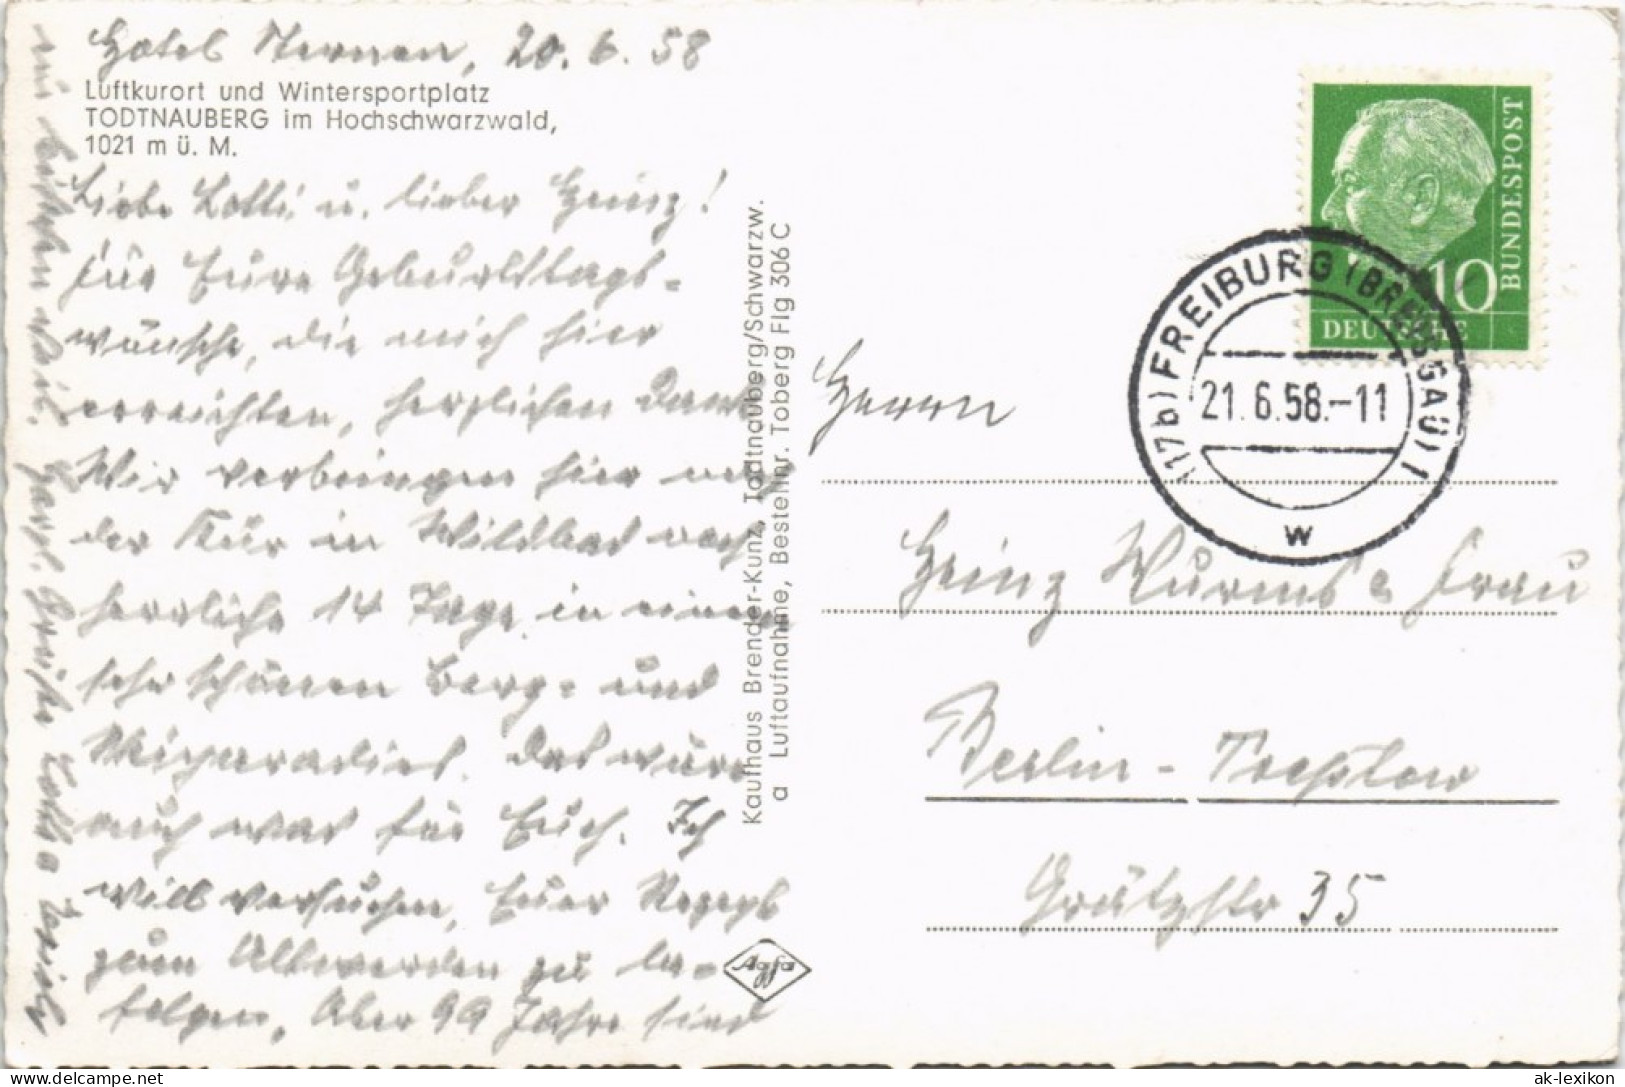 Hotel Sternen, 20. 6. 58
Luftkurort und Wintersportplatz
TODTNAUBERG im Hochschwarzwald,
1021 m ü. M.
Liebe Lotti u. lieber Heinz!
für Eure Geburtstags-
wünsche, die mich hier
erreichten, herzlichen Dank
Wir verbringen hier nach
der Kur in Wildbad noch
herrliche 14 Tage in einem
sehr schönen Berg- und
Skiparadies. Das wäre
auch was für Euch. Ich
will versuchen, Euer Rezept
zum Altwerden zu be-
folgen, Aber 99 Jahre sind
mir bisschen viel. Herzl. Grüße
Kaufhaus Brender-Kunz, Todtnauberg/Schwarzw.
a Luftaufnahme, Bestellnr. Toberg Flg 306 C
Agfa
BUNDESPOST
10
DEUTSCHE
(17b) FREIBURG (BREISGAU) 1
21.6.58.-11
w
Herrn
Heinz Wurms & Frau
Berlin-Treptow
Grätzstr 35
www.delcampe.net
ak-lexikon